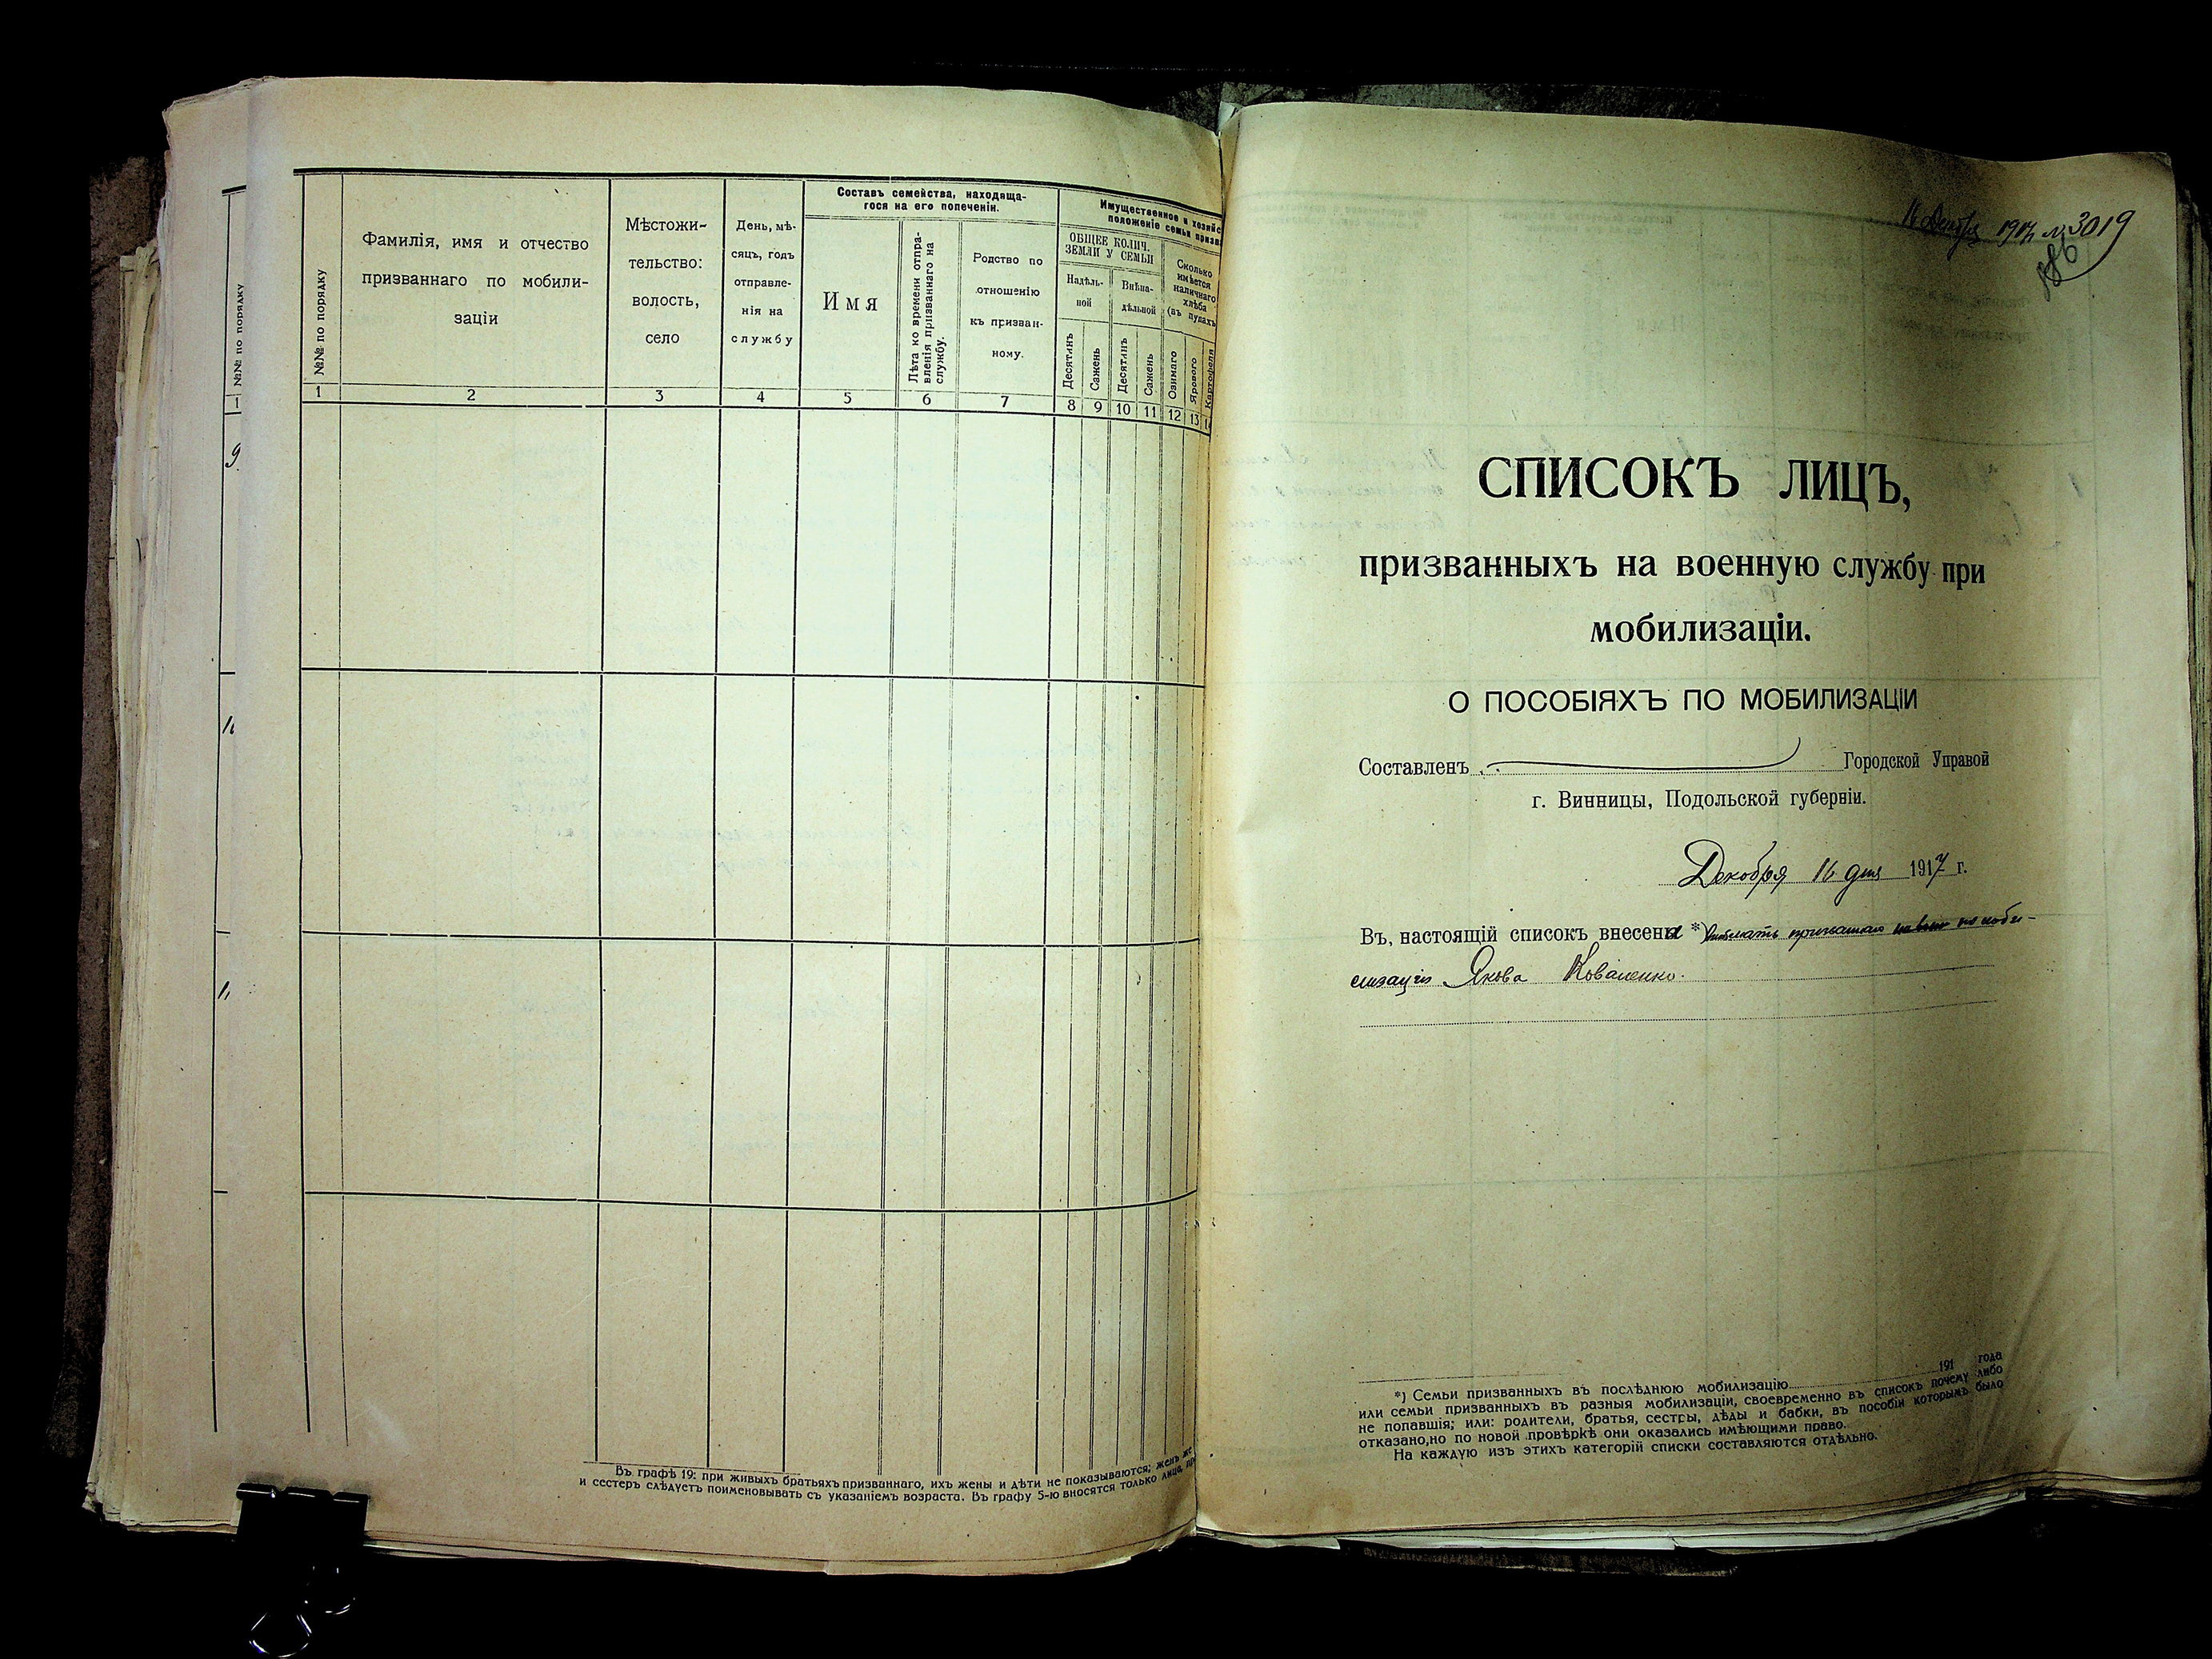 №№ по порядку
1
9
№№ по порядку
Фамилія, имя и отчество
призваннаго по мобили-
заціи
Мѣстожи-
тельство:
волость,
село
День, мѣ-
сяцъ, годъ
отправле-
нія на
службу
Составъ семейства, находяща-
гося на его попеченіи.
Имя
Лѣта ко времени отпра-
вленія призваннаго на
службу.
Родство по
отношенію
къ призван-
ному.
Имущественное и хозяйс
положеніе семьи призв
ОБЩЕЕ КОЛИЧ.
ЗЕМЛИ У СЕМЬИ
Надѣль-
ной
Внѣна-
дѣльной
Десятинъ
Сажень
Десятинъ
Сажень
Сколько
имѣется
наличнаго
хлѣба
(въ пудахъ
Озимаго
Ярового
Картофеля
1 2 3 4 5 6 7 8 9 10 11 12 13 1
Въ графѣ 19: при живыхъ братьяхъ призваннаго, ихъ жены и дѣти не показываются; женъ же
и сестеръ слѣдуетъ поименовывать съ указаніемъ возраста. Въ графу 5-ю вносятся только лица, пр
16 Декабря 1917 № 3019
СПИСОКЪ ЛИЦЪ,
призванныхъ на военную службу при
мобилизаціи.
О ПОСОБІЯХЪ ПО МОБИЛИЗАЦІИ
Составленъ Городской Управой
г. Винницы, Подольской губерніи.
Декабря 16 дня 1917 г.
Въ настоящій списокъ внесена *) мать по моби-
лизаціи Якова Коваленко.
*) Семьи призванныхъ въ послѣднюю мобилизацію 191 года
или семьи призванныхъ въ разныя мобилизаціи, своевременно въ списокъ почему либо
не попавшія; или: родители, братья, сестры, дѣды и бабки, въ пособіи которымъ было
отказано, но по новой провѣркѣ они оказались имѣющими право.
На каждую изъ этихъ категорій списки составляются отдѣльно.